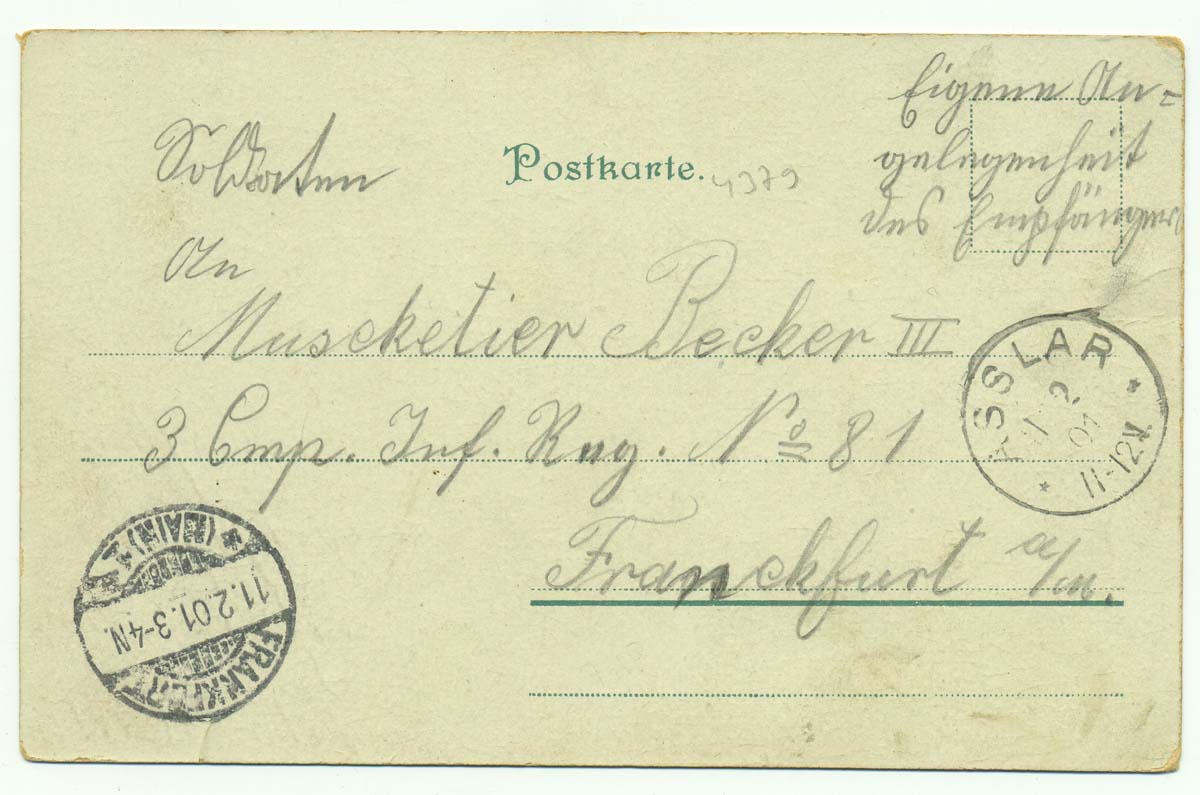 Eigene An-
gelegenheit
des Empfängers
Soldaten
Postkarte.
4379
An
Muscketier Becker III
3 Cmp. Inf. Reg. No 81
Franckfurt a/m.
ASSLAR
11 2.
01
11-12V.
FRANKFURT
(MAIN) 1
11.2.01.3-4N.